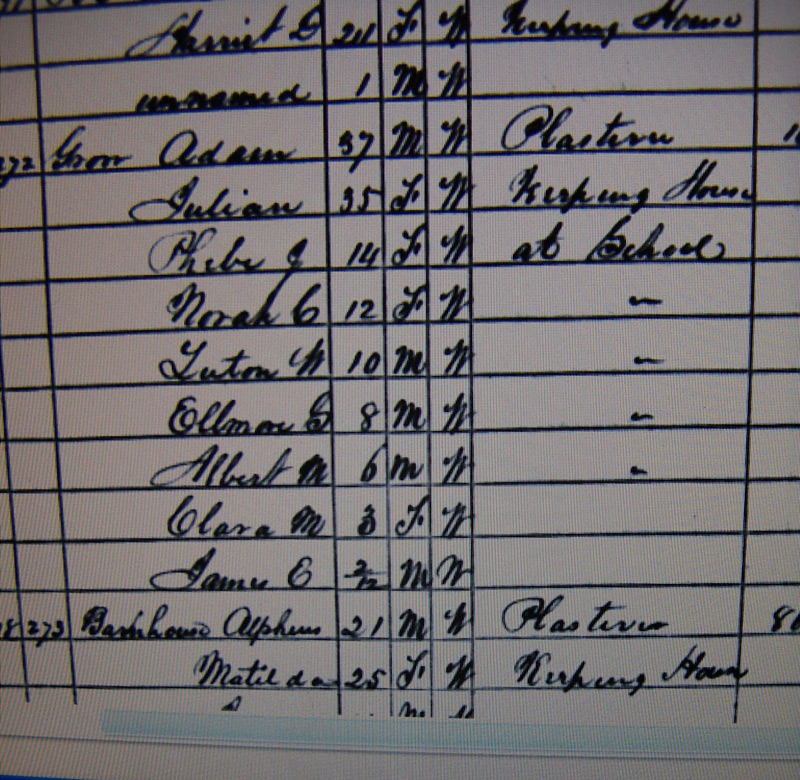 Harriet G 24 F W Keeping House
unnamed 1 M W
272 Grow Adam 37 M W Plasterer
Julian 35 F W Keeping House
Phebe J 14 F W at School
Norah C 12 F W "
Luton W 10 M W "
Ellmore G 8 M W "
Albert M 6 M W "
Clara M 3 F W
James E 2/12 M W
273 Barkhouse Alpheus 21 M W Plasterer
Matilda 25 F W Keeping House